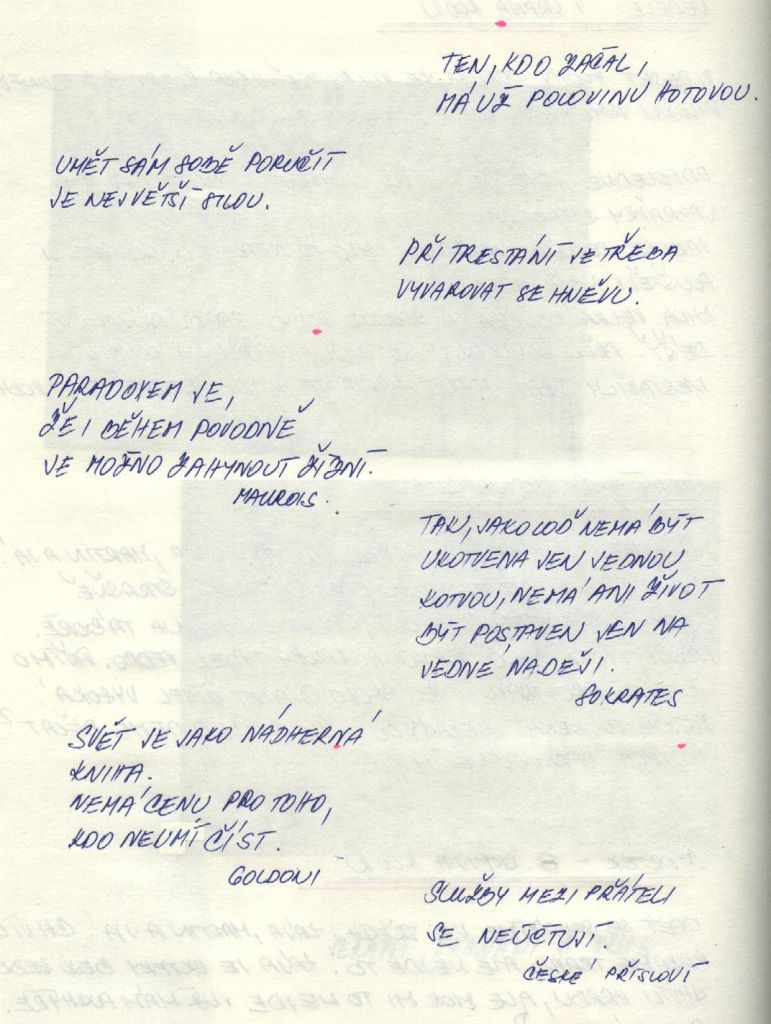 TEN, KDO ZAČAL,
MÁ UŽ POLOVINU HOTOVOU.
UMĚT SÁM SOBĚ PORUČIT
JE NEJVĚTŠÍ SILOU.
PŘI TRESTÁNÍ JE TŘEBA
VYVAROVAT SE HNĚVU.
PARADOXEM JE,
ŽE I BĚHEM POVODNĚ
JE MOŽNO ZAHYNOUT ŽÍZNÍ.
MAUROIS.
TAK, JAKO LOĎ NEMÁ BÝT
UKOTVENA JEN JEDNOU
KOTVOU, NEMÁ ANI ŽIVOT
BÝT POSTAVEN JEN NA
JEDNÉ NADĚJI.
SOKRATES
SVĚT JE JAKO NÁDHERNÁ
KNIHA.
NEMÁ CENU PRO TOHO,
KDO NEUMÍ ČÍST.
GOLDONI
SLUŽBY MEZI PŘÁTELI
SE NEÚČTUJÍ.
ČESKÉ PŘÍSLOVÍ